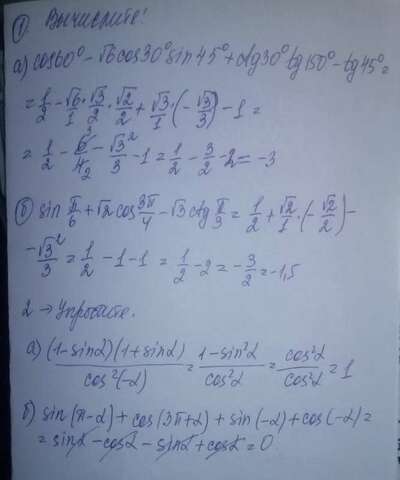 ① Вычислите!
а) cos60° - √6cos30°sin45° + ctg30° tg150° - tg45° =
= 1/2 - √6/1 · √3/2 · √2/2 + √3/1 · (-√3/3) - 1 =
= 1/2 - 6³/4₂ - √3²/3 - 1 = 1/2 - 3/2 - 2 = -3
б) sin π/6 + √2 cos 3π/4 - √3 ctg π/3 = 1/2 + √2/1 · (-√2/2) -
- √3²/3 = 1/2 - 1 - 1 = 1/2 - 2 = -3/2 = -1,5
2 → Упростите.
а) (1-sinα)(1+sinα)/cos²(-α) = 1-sin²α/cos²α = cos²α/cos²α = 1
б) sin(π-α) + cos(3π+α) + sin(-α) + cos(-α) =
= sinα - cosα - sinα + cosα = 0